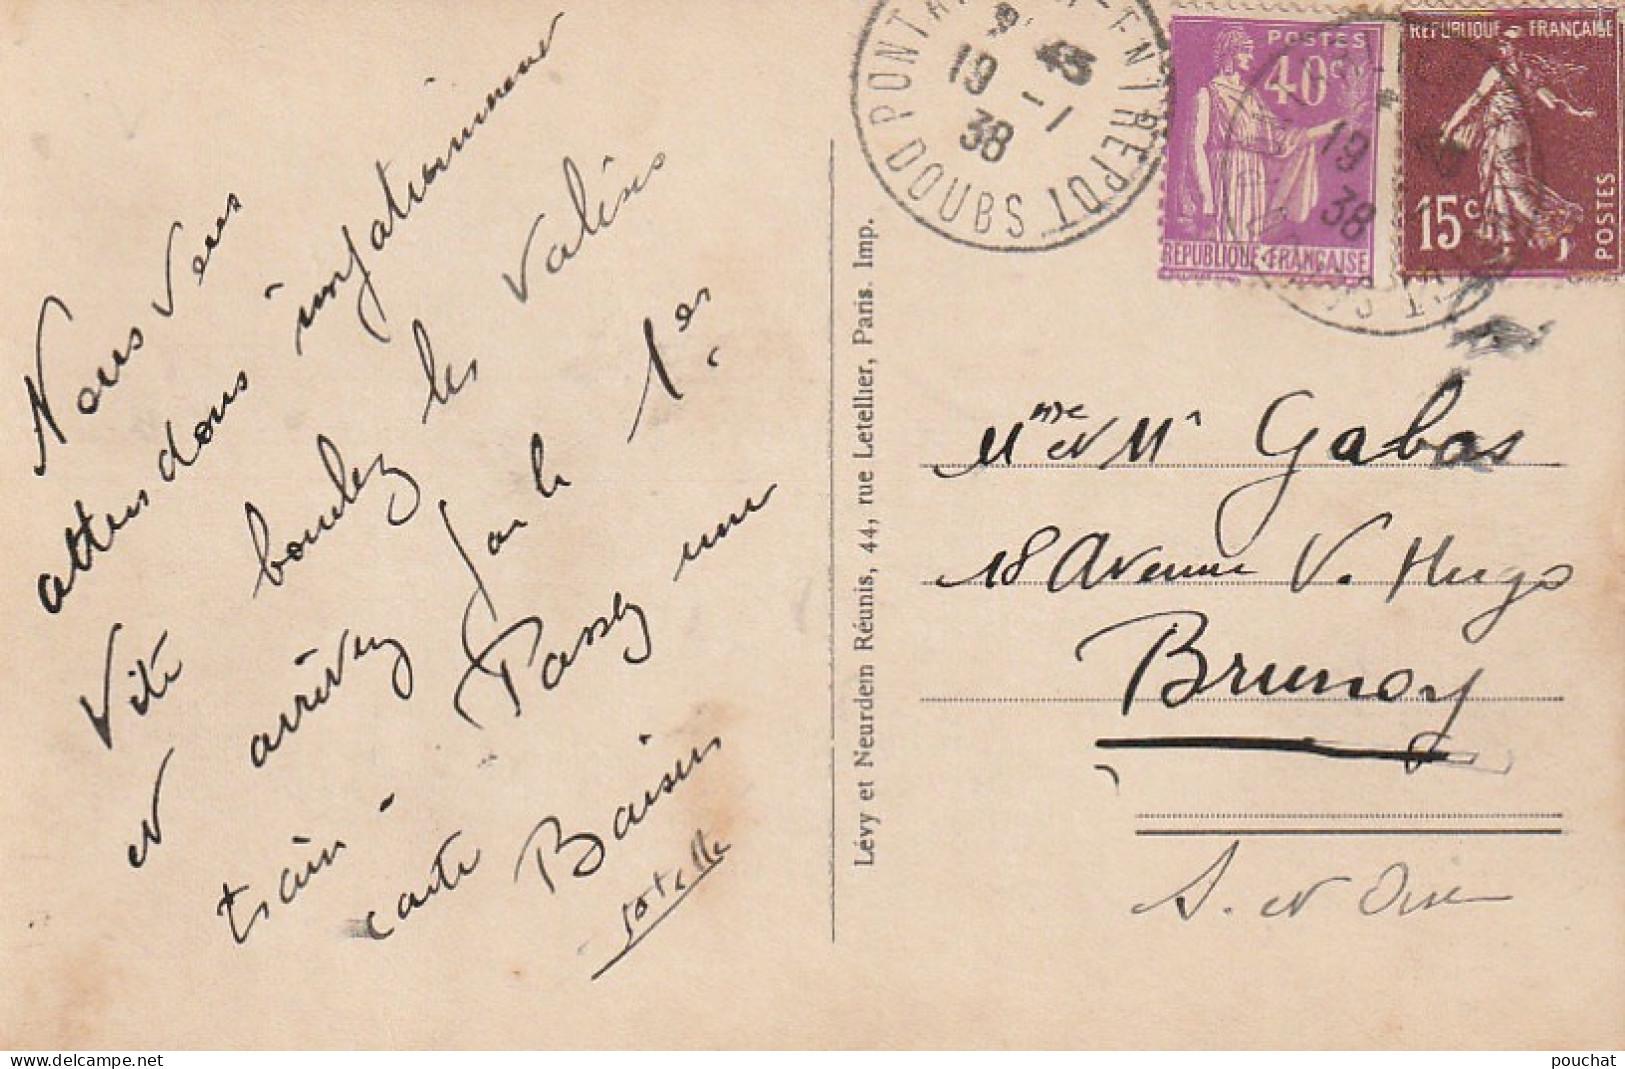 Nous vous
attendons impatiemment
Vite bouclez les valises
et arrivez par le 1er
train - Passez une
carte Baisers
PONTARLIER-ENTREPOT
DOUBS
19 -1
38
POSTES
40c
REPUBLIQUE FRANÇAISE
REPUBLIQUE FRANÇAISE
15c
POSTES
19
38
Lévy et Neurdein Réunis, 44, rue Letellier, Paris. Imp.
Mme et Mr Gabas
18 Avenue V. Hugo
Brunoy
S. et Oise
pouchat